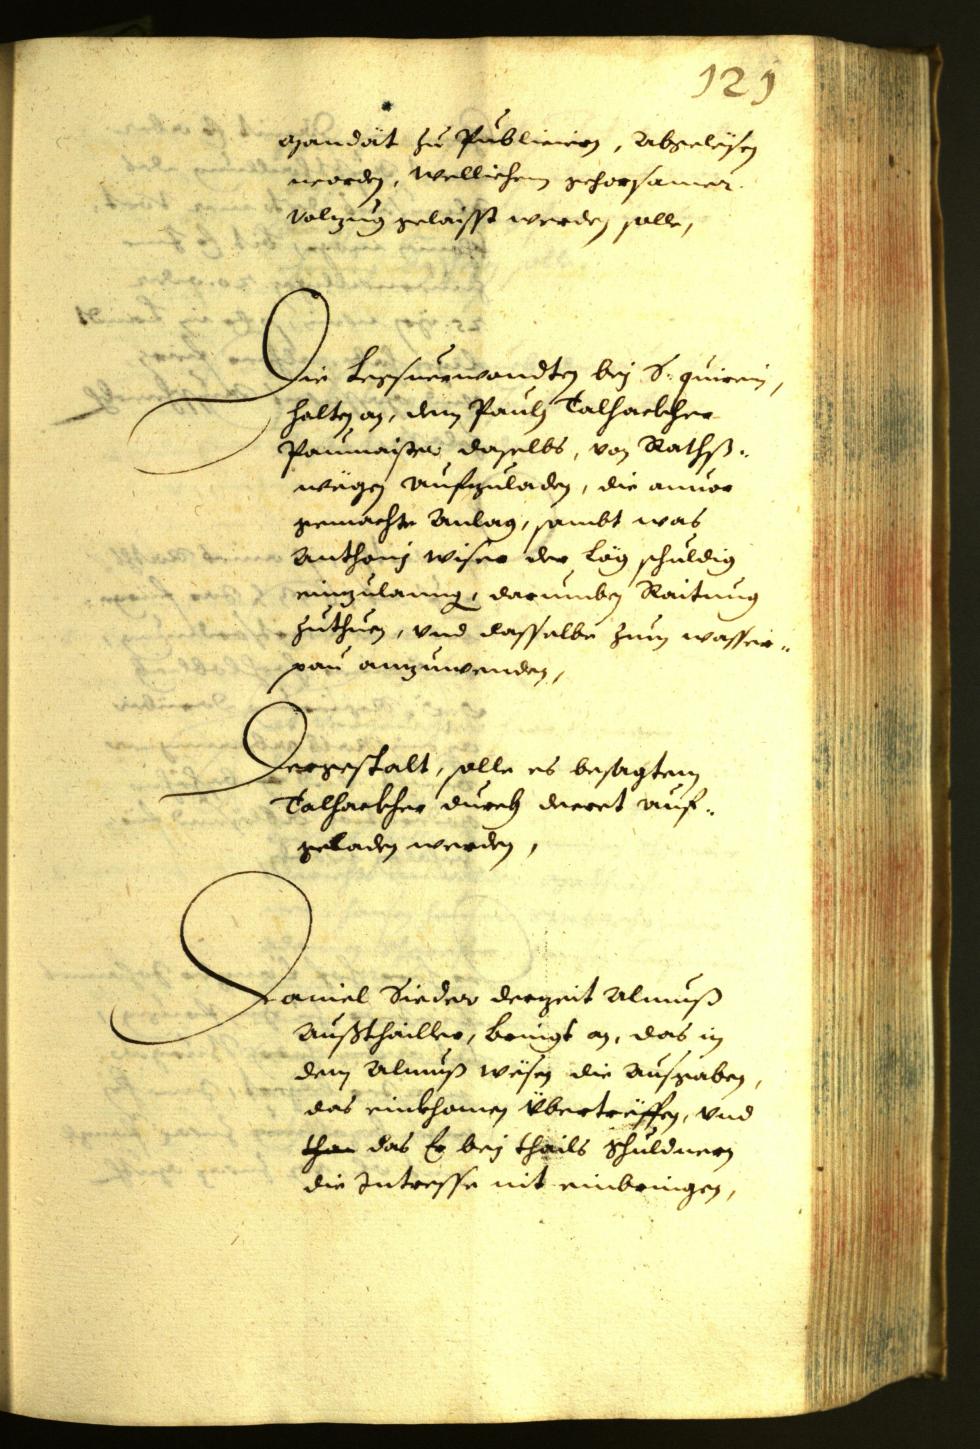 121
Mandat zu Publiciern, Abgelesen
worden, wellichem gehorsamer
Volzug gelaisst werden solle,
Die Legsverwandten bej S: quirein,
halten an, dem Paulj Talhackher
Paumaister daselbs, von Rathß„
wegen aufzuladen, die anuor
gemachte Anlag, sambt was
Anthonj Wiser der Leg schuldig
einzulanng, darumben Raitung
zuthuen, vnd dasselbe zum wasser„
pau anzuwenden,
Dergestalt, solle es besagtem
Talhackher durch decret auf„
geladen werden,
Daniel Sieder derzeit Almueß
Außthailler, bringt an, das in
dem Almueß wesen die Ausgaben,
das einkhomen Übertreffen, vnd
das Er bej thails Schuldnern
die Intresse nit einbringen,